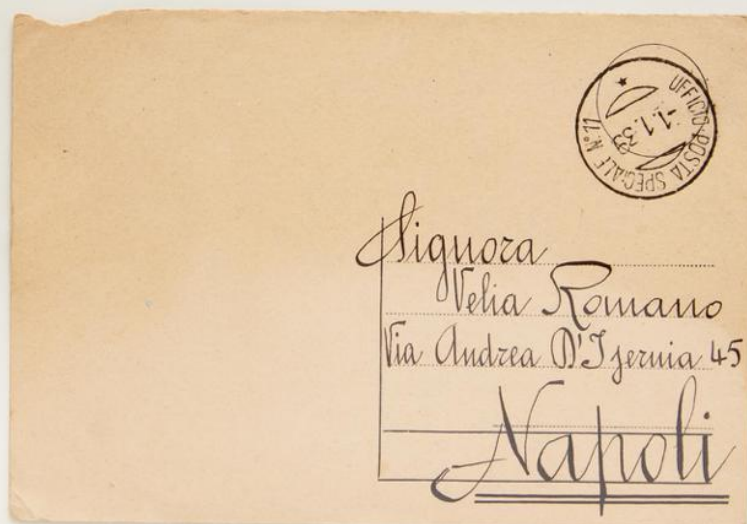 UFFICIO POSTA SPECIALE N° 11
-1.1.39
Signora
Velia Romano
Via Andrea D'Isernia 45
Napoli